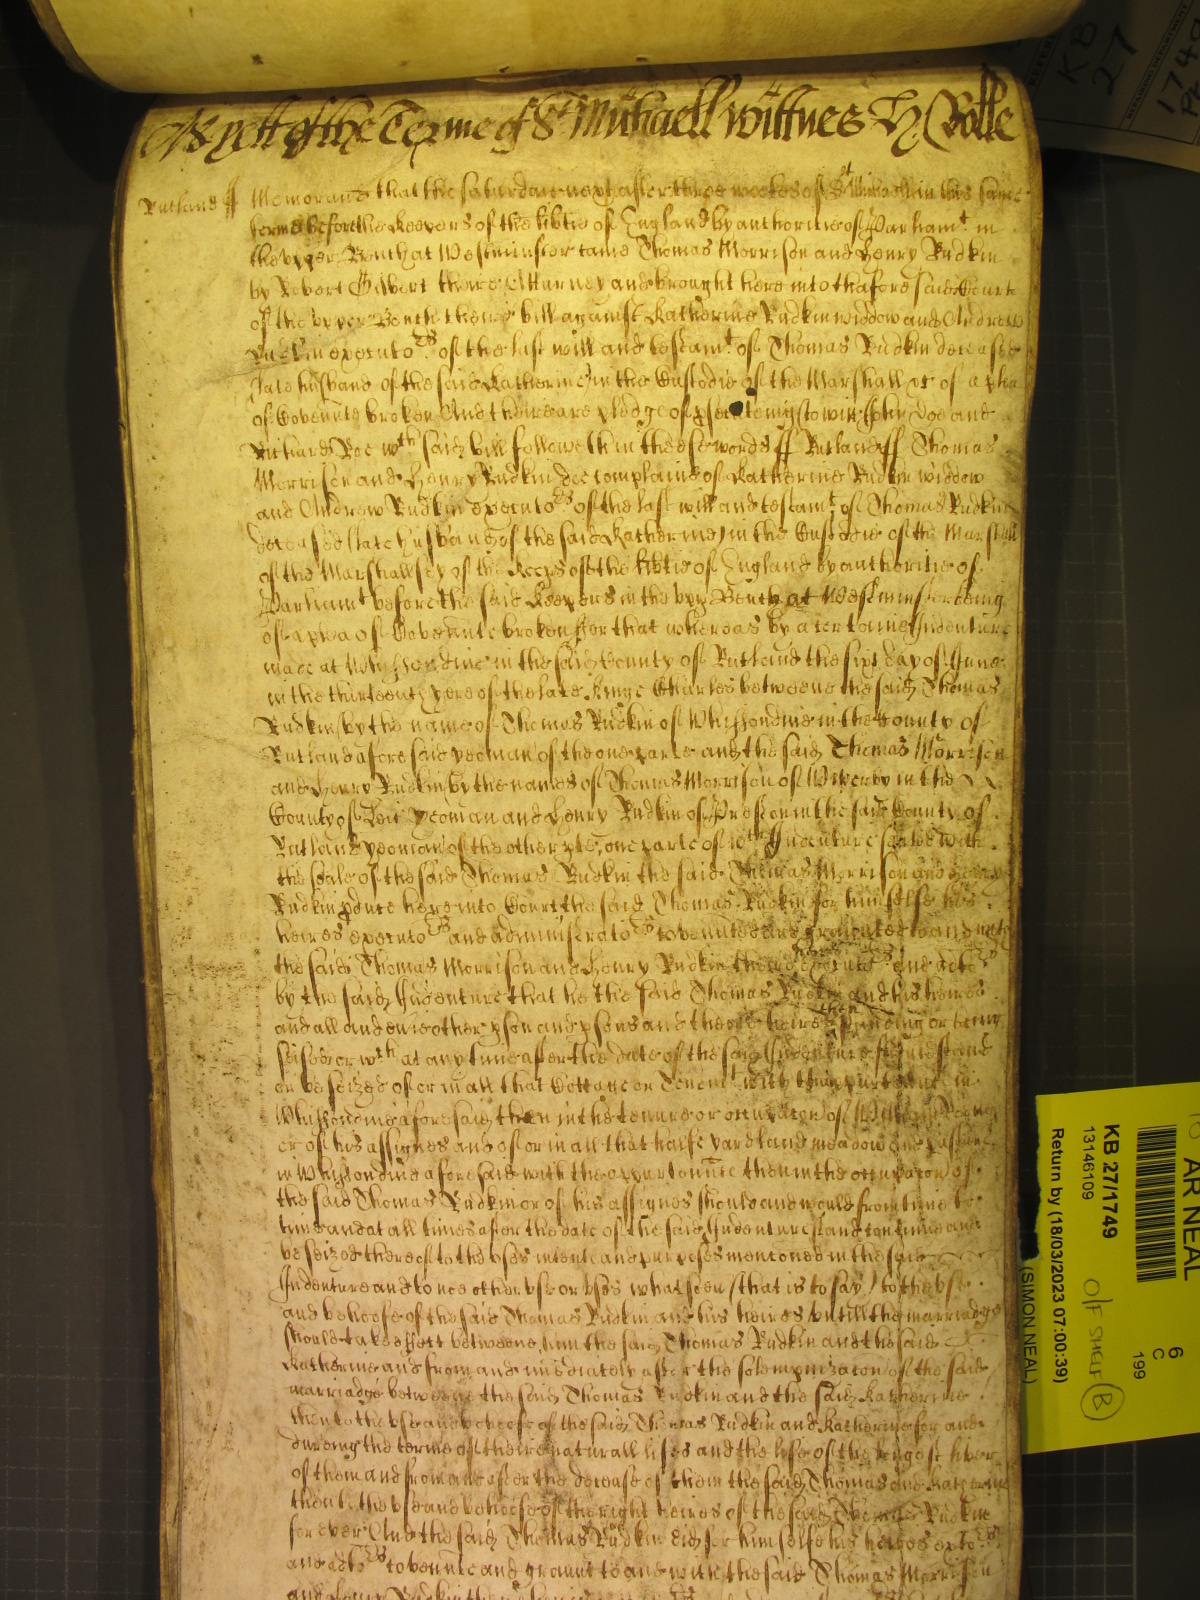 As yett of the Terme of St Michaell Wittnes H Rolle
Rutland ss Memorand that the Saturday next after three weekes of St Michaell in this same
terme before the Keepers of the libtie of England by authoritie of Parliamt in
the upper Bench at Westminster came Thomas Morrison and Henry Rudkin
by Robert Gilbert theire Atturney and brought here into the afore said Court
of the upper Bench theire bill against Katherine Rudkin widdow and Andrew
Rudkin executors of the last will and testamt of Thomas Rudkin deceased
late husband of the said Katherine in the Custodie of the Marshall &c of a plea
of Covennte broken And there are pledges of to witt John Doe and
Richard Roe wch said bill followeth in these words ss Rutland ss Thomas
Morrison and Henry Rudkin doe complaine of Katherine Rudkin widdow
and Andrew Rudkin executors of the last will and testamt of Thomas Rudkin
deceased (late husband of the said Katherine) in the Custodie of the Marshall
of the Marshallsey of the Keeps of the libtie of England by authoritie of
Parliamt before the said Keepers in the uppr Bench at Westminster being
of a plea of Covennte broken For that whereas by a certaine Indenture
made at Whissondine in the said County of Rutland the sixt day of June
in the thirteenth yere of the late Kinge Charles betweene the said Thomas
Rudkin by the name of Thomas Rudkin of Whissondine in the County of
Rutland aforesaid yeoman of the one parte and the said Thomas Morrison
and Henry Rudkin by the names of Thomas Morrison of in the
County of Leic yeoman and Henry Rudkin of Preston in the said County of
Rutland yeoman of the other pte, one parte of wch Indenture sealed with
the seale of the said Thomas Rudkin the said Thomas Morrison and Henry
Rudkin pduce here into Court the said Thomas Rudkin for himselfe his
heires executors and administrators covennted and graunted to and with
the said Thomas Morrison and Henry Rudkin theire heires executors and
by the said Indenture that he the said Thomas Rudkin and his heires
and all and evie other pson and psons and theire heires then standing or being
seised or wch at any time after the date of the said Indenture should stand
or be seized of or in all that Cottage or Tenemt with thappurtennces in
Whissondine aforesaid then in the tenure or occupacon of William
or of his assignes and of or in all that halfe yard land meadow and pasture
in Whissondine aforesaid with the appurtennces then in the occupacon of
the said Thomas Rudkin or of his assignes should and would from time to
time and at all times after the date of the said Indenture stand continue and
be seized thereof to the uses intents and purposes mentioned in the said
Indenture and to noe other use or uses whatsoevr (that is to say) to the use
and behoofe of the said Thomas Rudkin and his heires untill the marriadge
should take effect betweene him the said Thomas Rudkin and the said
Katherine and from and imediately after the solempnizacon of the said
marriadge betweene the said Thomas Rudkin and the said Katherine
then to the use and behoofe of the said Thomas Rudkin and Katherine for and
dureing the terme of theire naturall lifes and the life of the longest liver
of them and from and after the decease of them the said Thomas and Katherine
then to the use and behoofe of the right heires of the said Thomas Rudkin
for ever And the said Thomas Rudkin did for himselfe his heires exctors
and admrs covennte and graunt to and with the said Thomas Morrison
and Henry Rudkin
KB 27
1749
AR NEAL
KB 27/1749
13146109
Return by (18/03/2023 07:00:39)
(SIMON NEAL)
O/F SHELF B
6
C
199